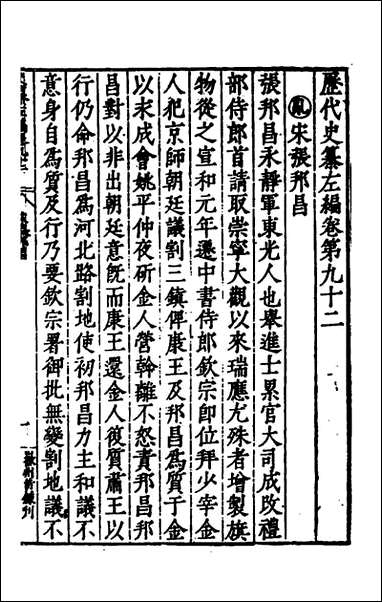 歷代史纂左編卷第九十二
亂 宋張邦昌
張邦昌永靜軍東光人也舉進士累官大司成改禮
部侍郎首請取崇寧大觀以來瑞應尤殊者增製旗
物從之宣和元年遷中書侍郎欽宗卽位拜少宰金
人犯京師朝廷議割三鎮俾康王及邦昌爲質于金
以求成會姚平仲夜斫金人營斡離不怒責邦昌邦
昌對以非出朝廷意旣而康王還金人復質肅王以
行仍命邦昌爲河北路割地使初邦昌力主和議不
意身自爲質及行乃要欽宗署御批無變割地議不